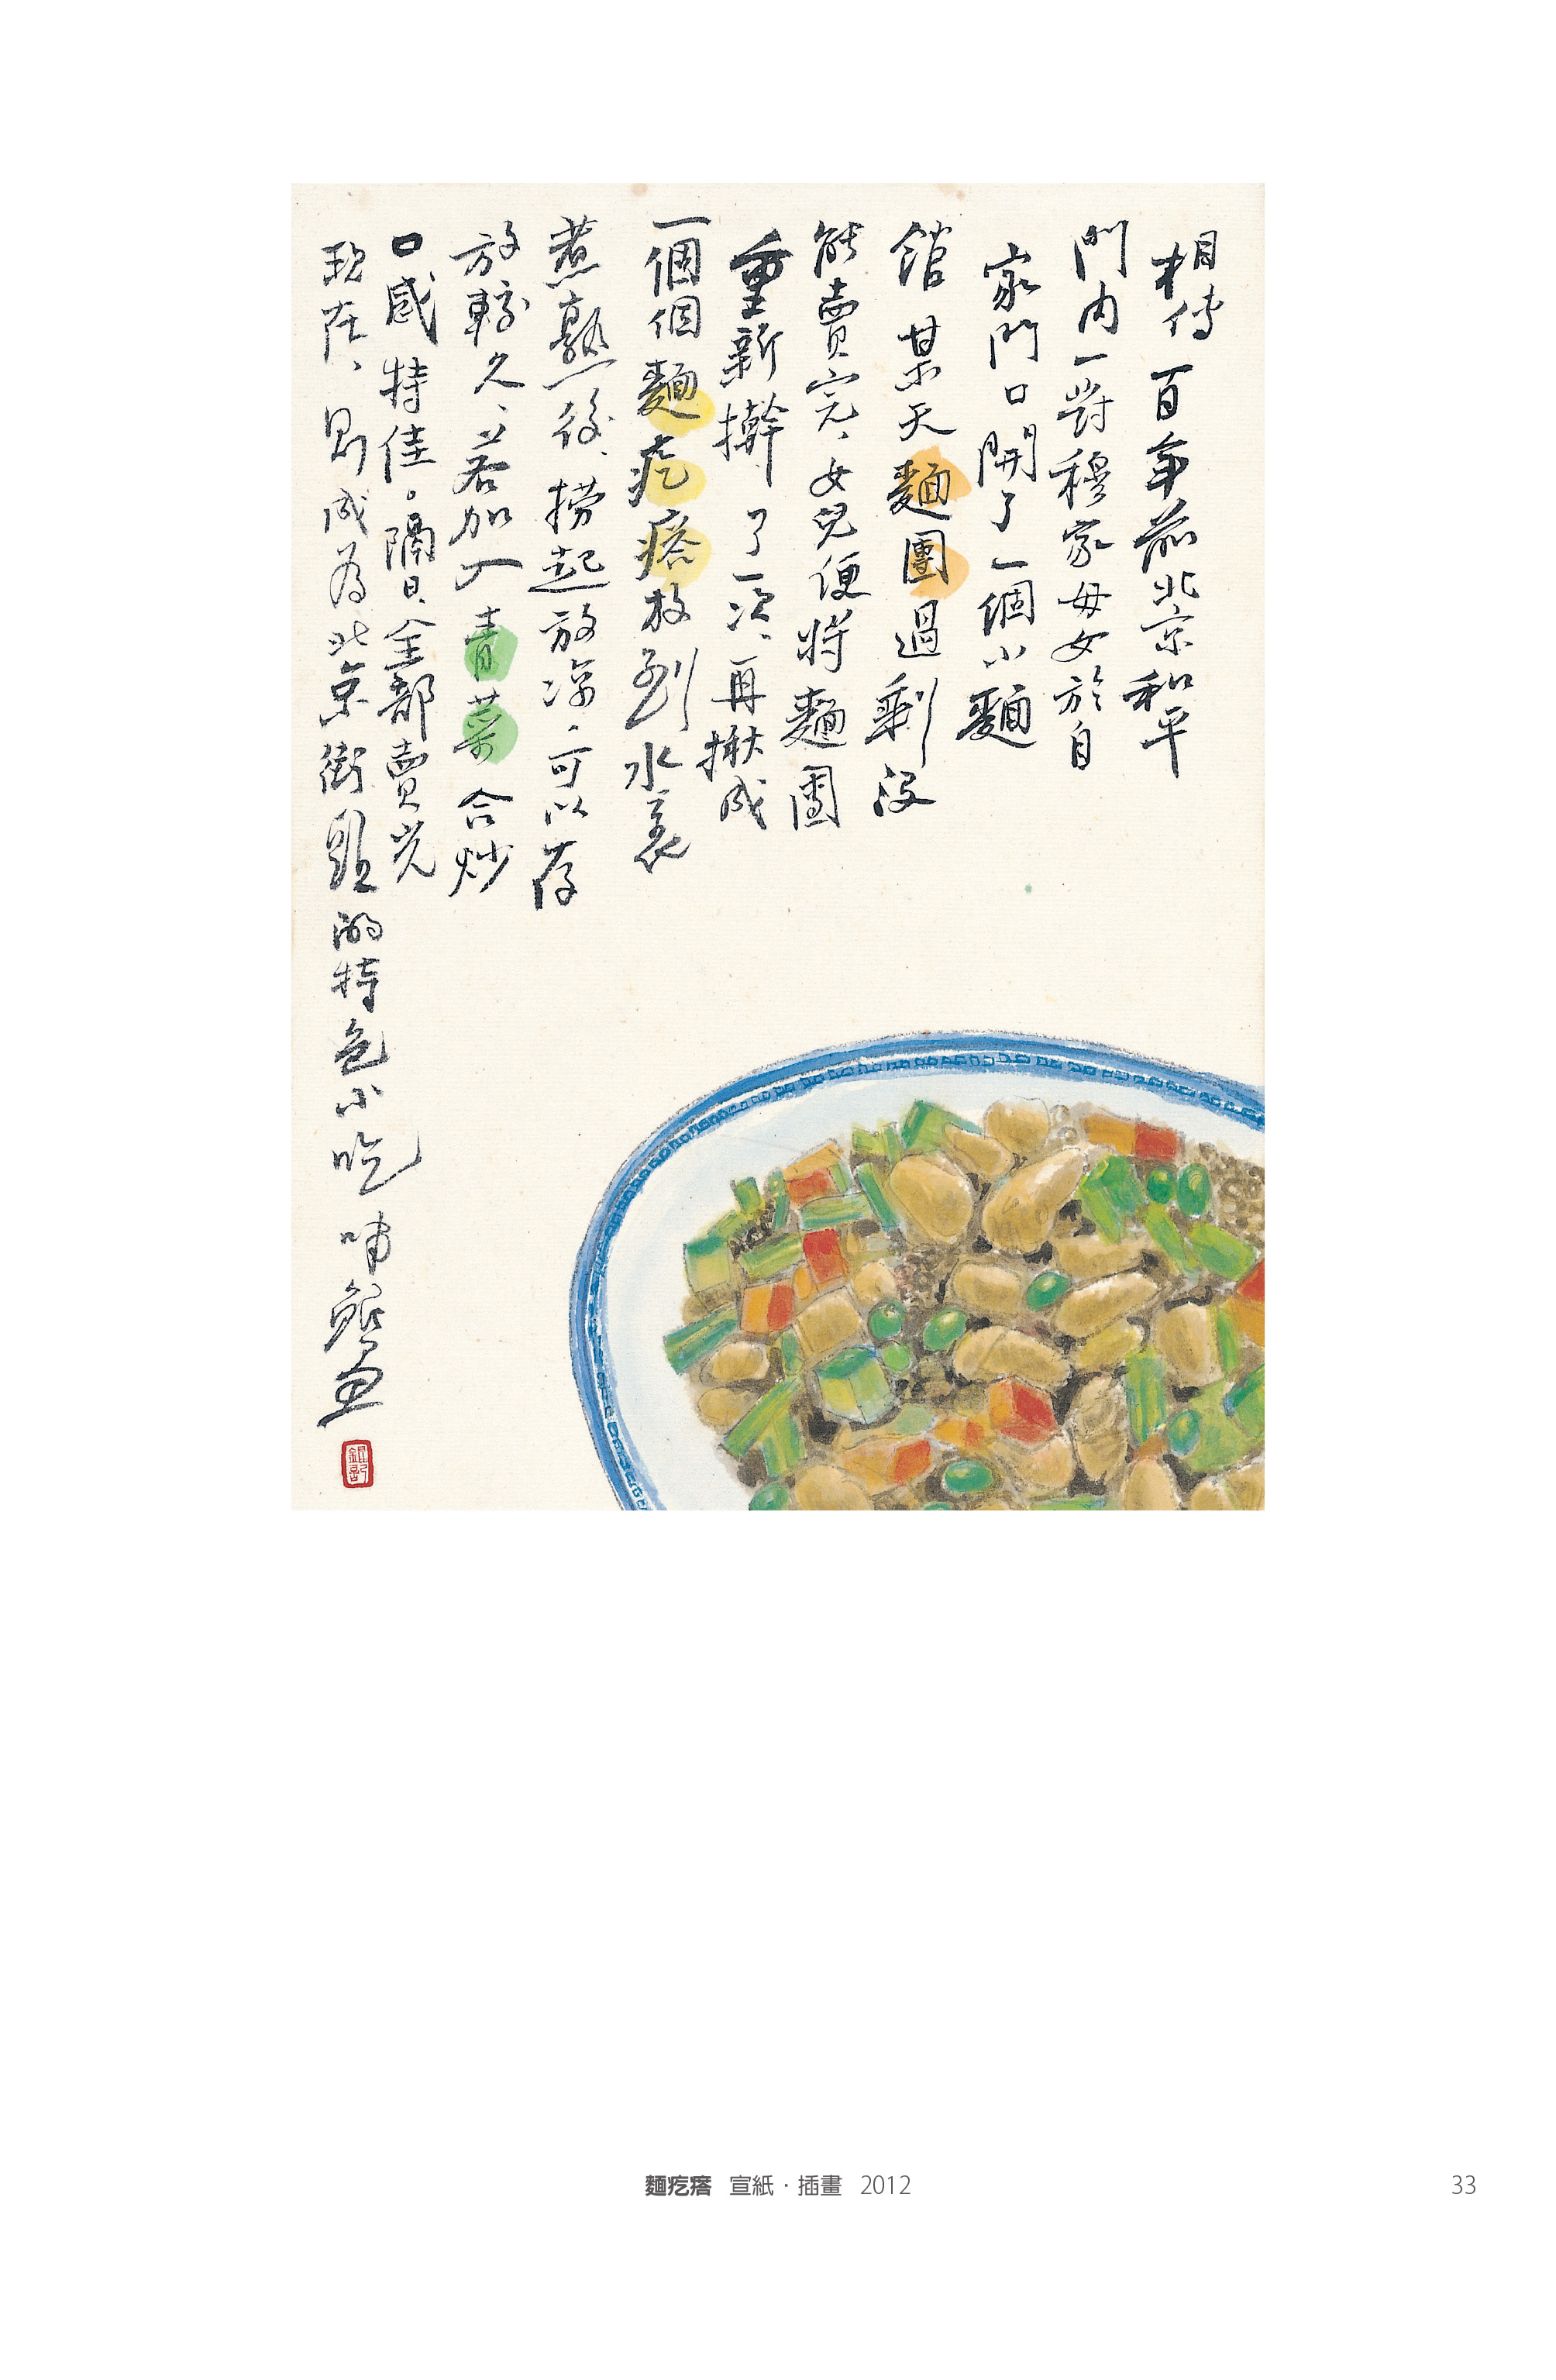 相傳一百年前北京和平
門內一對穆家母女於自
家門口開了一個小麵
館某天麵團過剩沒
能賣完、女兒便將麵團
重新擀了一次、再揪成
一個個麵疙瘩放到水裏
煮熟後、撈起放涼、可以存
放較久、若加入青菜合炒
口感特佳。隔日、全部賣光
現在、則成為北京街頭的特色小吃
麵疙瘩 宣紙·插畫 2012
33